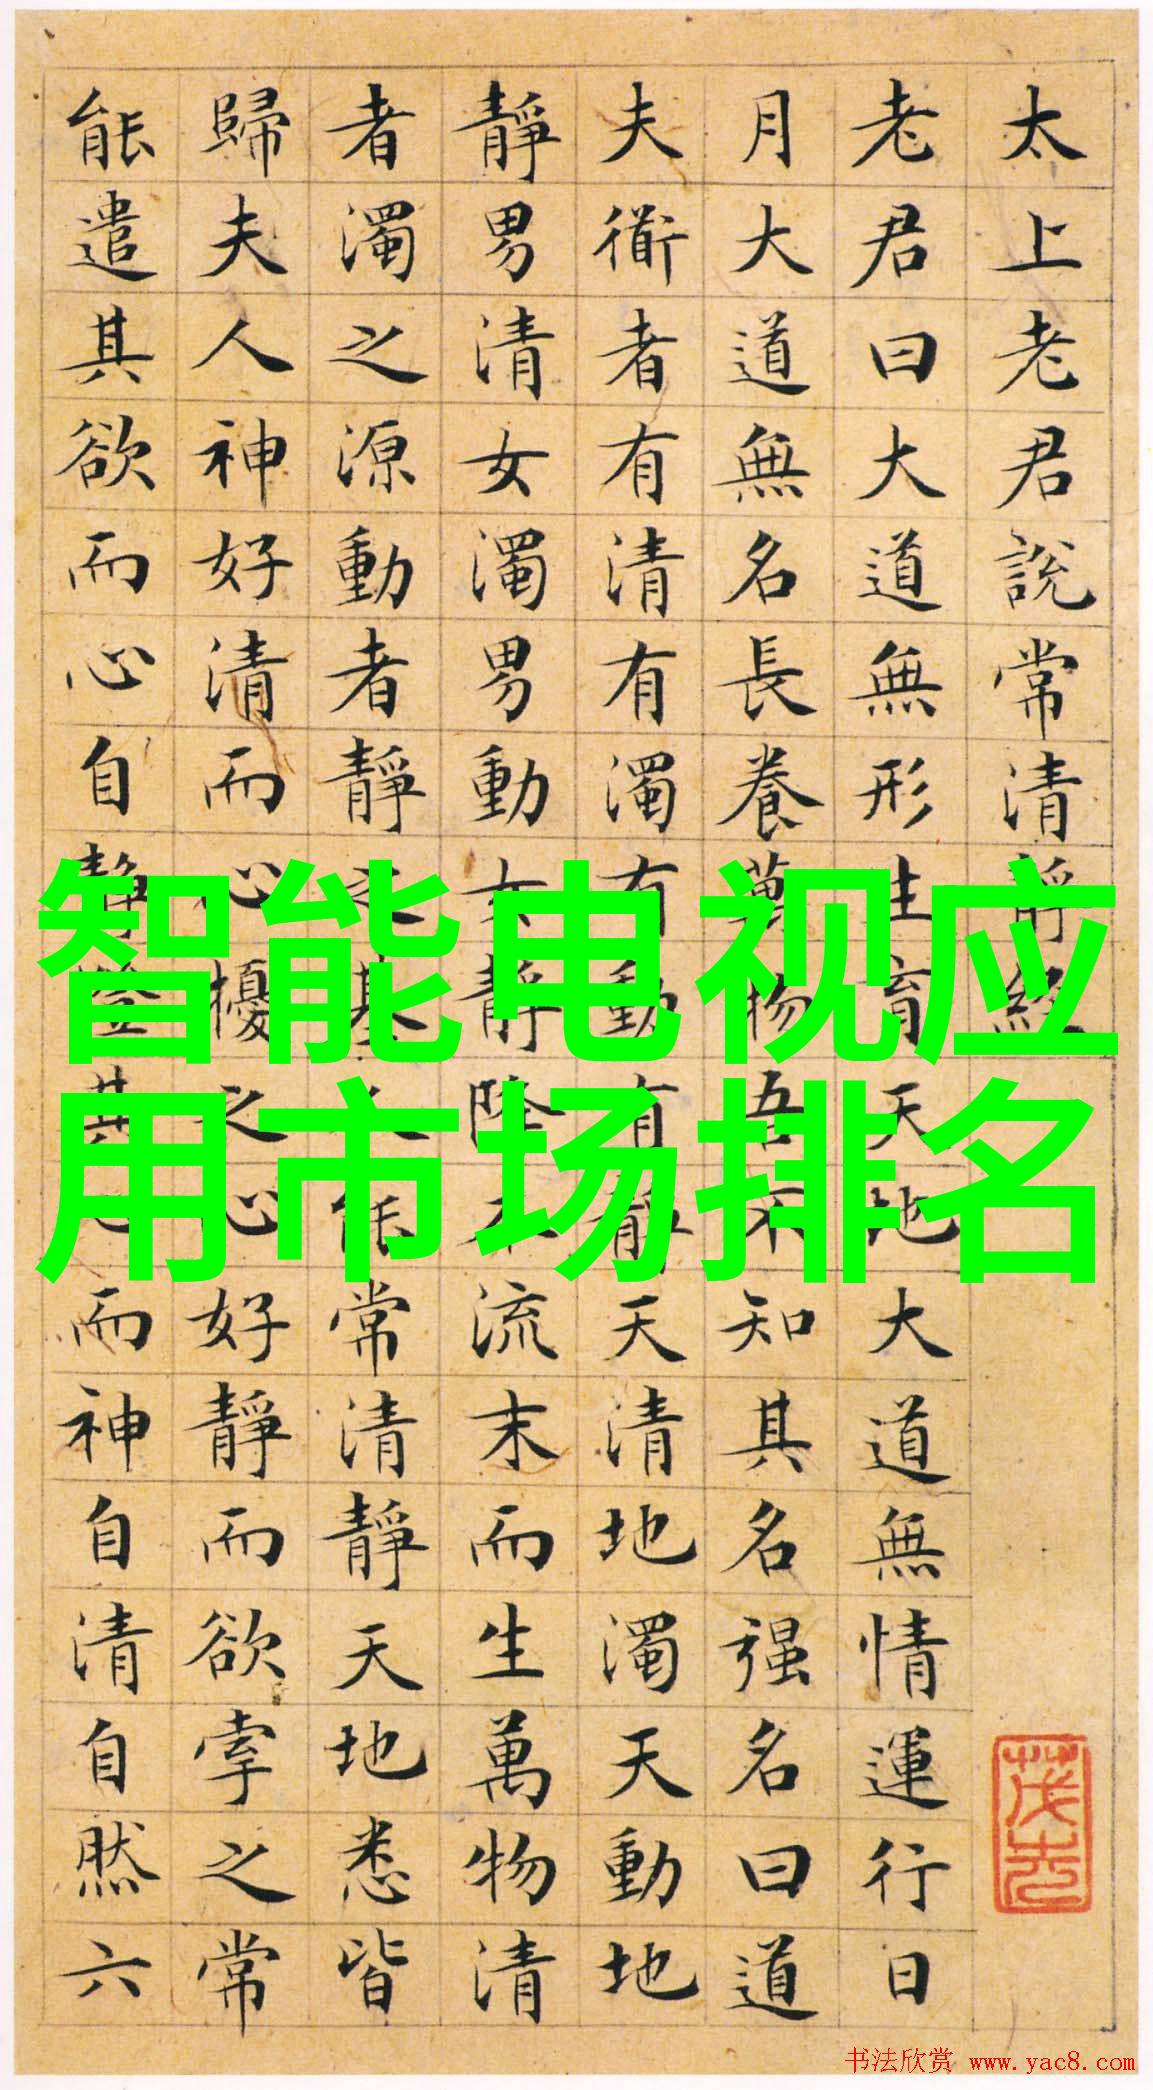 太上老君說常清靜經
老君曰大道無形生育天地大道無情運行日
月大道無名長養萬物吾不知其名强名曰道
夫衜者有清有濁有動有靜天清地濁天動地
靜男清女濁男動女靜降本流末而生萬物清
者濁之源動者靜之基人能常清靜天地悉皆
歸夫人神好清而心擾之心好靜而欲牽之常
能遣其欲而心自靜澄其心而神自清自然六
智能电视应
用市场排名
书法欣赏 www.yac8.com